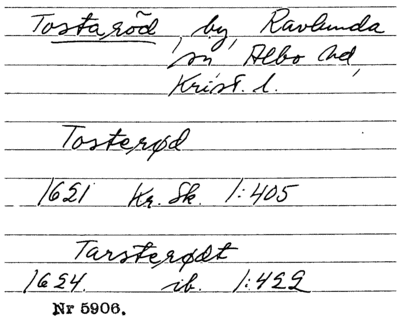 Tostaröd, by, Ravlunda
sn Albo hd,
Krist. l.
Tosterød
1621 Kr. Sk. 1:405
Tarsterødt
1624. ib. 1:422
Nr 5906.